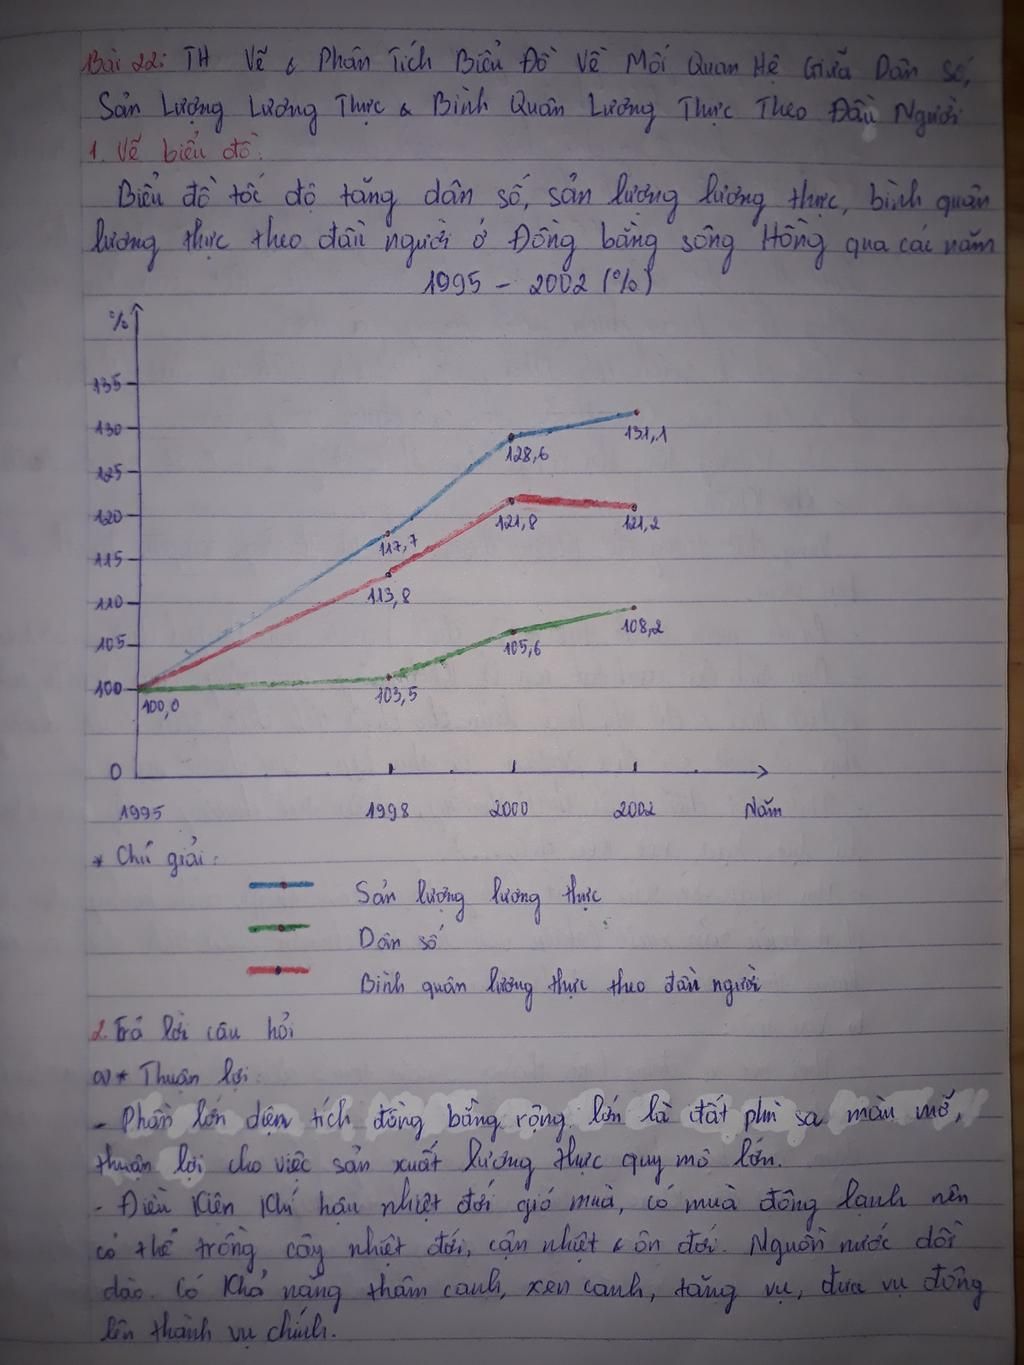 Bài 22: TH Vẽ & Phân Tích Biểu Đồ Về Mối Quan Hệ Giữa Dân Số,
Sản Lượng Lương Thực & Bình Quân Lương Thực Theo Đầu Người
1. Vẽ biểu đồ:
Biểu đồ tốc độ tăng dân số, sản lượng lương thực, bình quân
lương thực theo đầu người ở Đồng bằng sông Hồng qua các năm
1995 - 2002 (%)
%
135
130
131,1
128,6
125
120
121,8
121,2
117,7
115
113,8
110
108,2
105
105,6
100
103,5
100,0
0
1995 1998 2000 2002 Năm
* Chú giải:
Sản lượng lương thực
Dân số
Bình quân lương thực theo đầu người
2. Trả lời câu hỏi
a) * Thuận lợi:
- Phần lớn diện tích đồng bằng rộng lớn là đất phù sa màu mỡ,
thuận lợi cho việc sản xuất lương thực quy mô lớn.
- Điều kiên khí hậu nhiệt đới gió muà, có muà đông lạnh nên
có thể trồng cây nhiệt đới, cận nhiệt & ôn đới. Nguồn nước dồi
dào. Có khả năng thâm canh, xen canh, tăng vụ, đưa vụ đông
lên thành vụ chính.